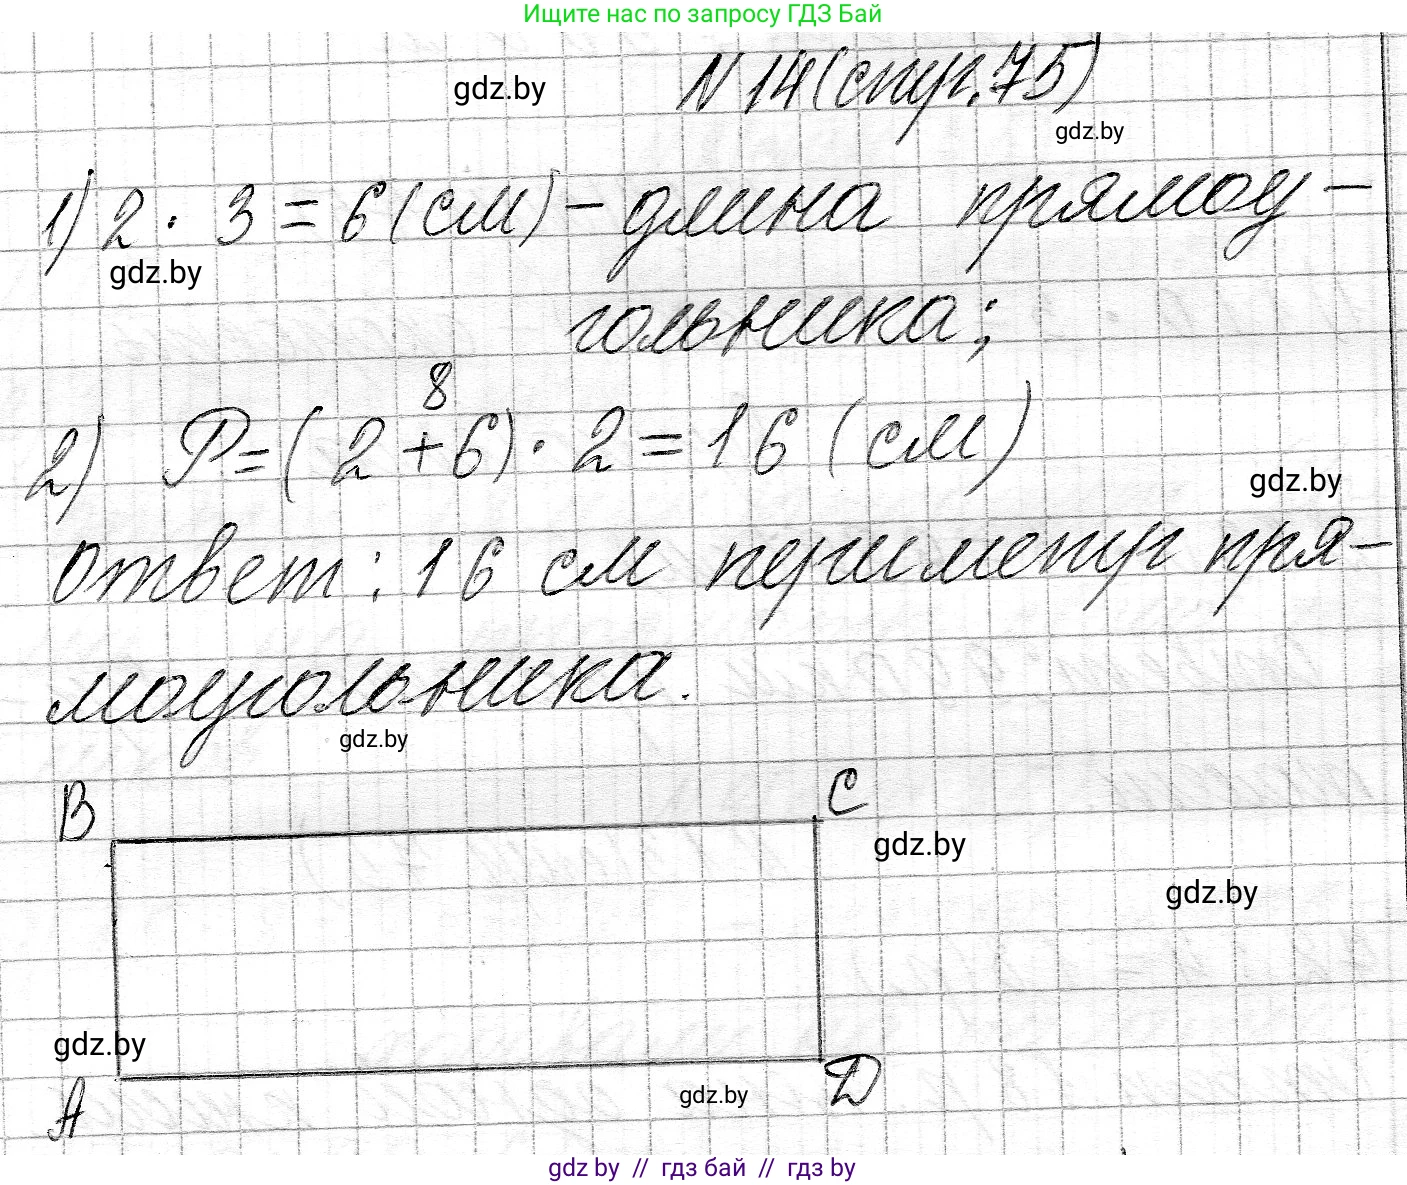 Ищите нас по запросу ГДЗ Бай
gdz.by
N 14 (стр. 75)
gdz.by
1) 2 · 3 = 6 (см) – длина прямоу-
gdz.by
гольника;
8
2) P = (2 + 6) · 2 = 16 (см)
gdz.by
Ответ: 16 см периметр пря-
моугольника.
gdz.by
B
C
gdz.by
gdz.by
gdz.by
A
gdz.by
D
gdz.by // гдз бай // гдз by